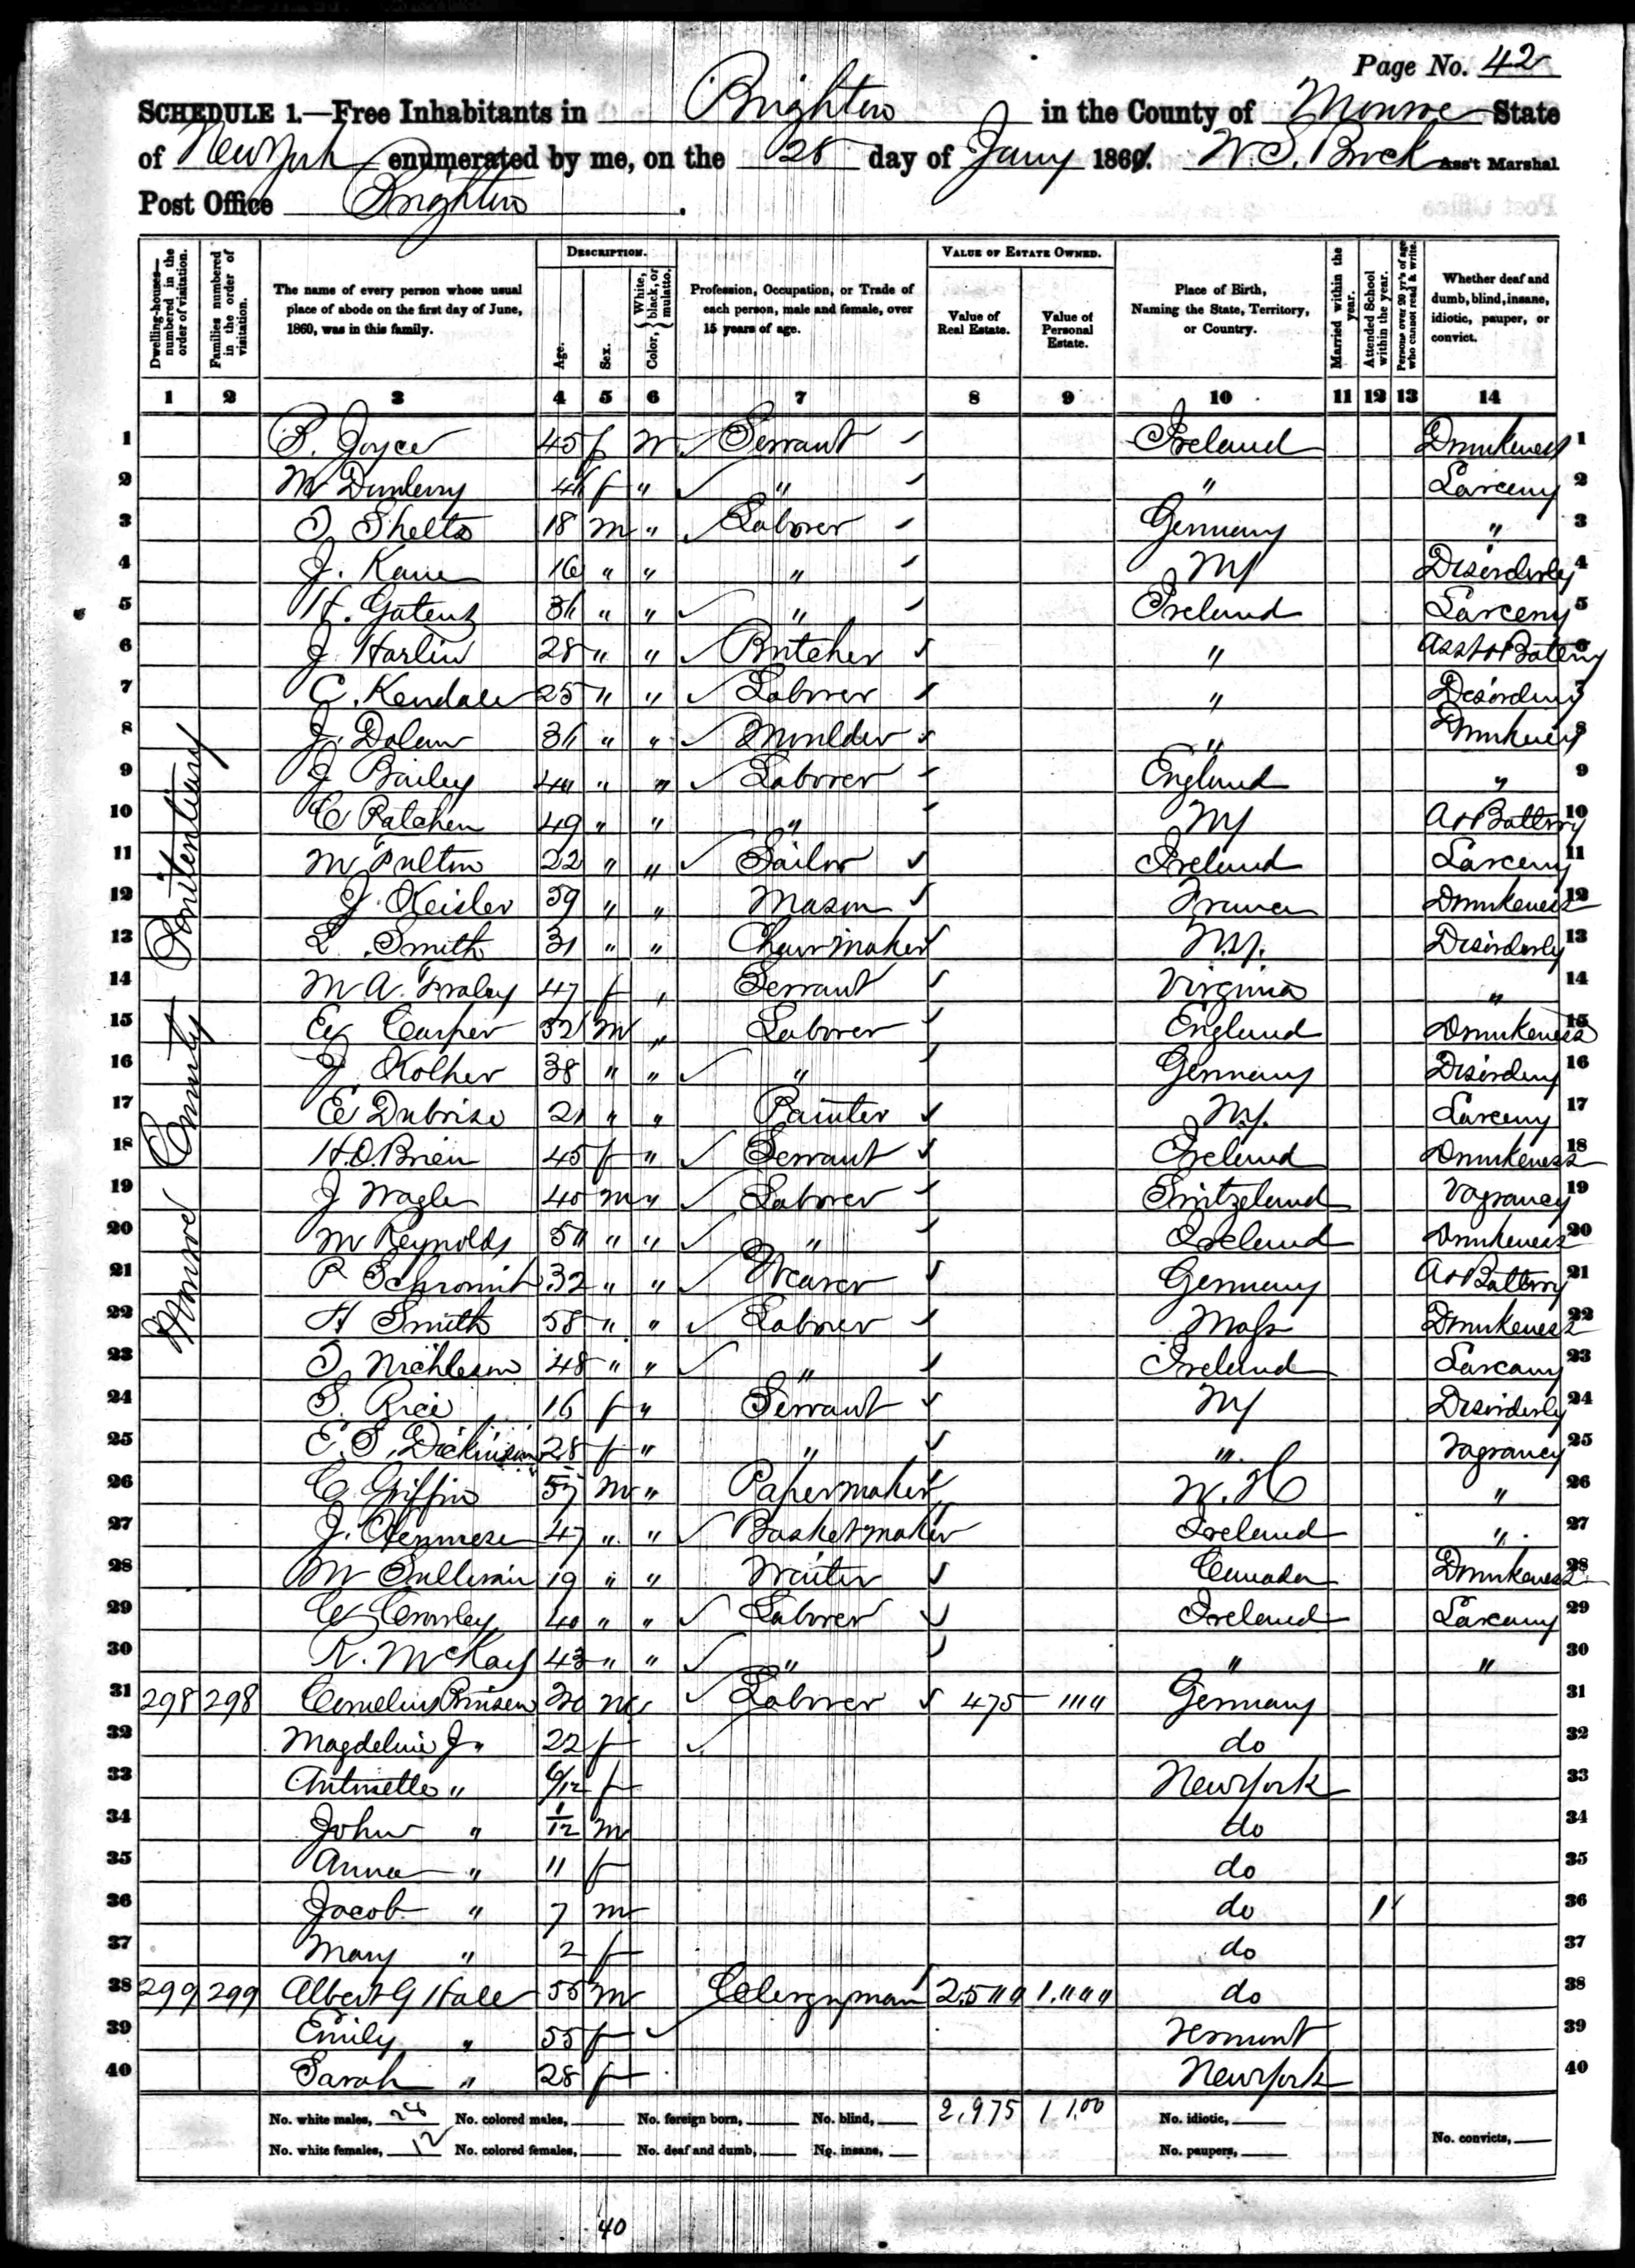 Page No. 42
SCHEDULE 1.—Free Inhabitants in Brighton in the County of Monroe State
of New York enumerated by me, on the 28 day of Jany 1861. W. S. Bock Ass't Marshal
Post Office Brighton.
DESCRIPTION. VALUE OF ESTATE OWNED.
Dwelling-houses—numbered in the order of visitation. Families numbered in the order of visitation. The name of every person whose usual place of abode on the first day of June, 1860, was in this family. Age. Sex. Color, {White, black, or mulatto. Profession, Occupation, or Trade of each person, male and female, over 15 years of age. Value of Real Estate. Value of Personal Estate. Place of Birth, Naming the State, Territory, or Country. Married within the year. Attended School within the year. Persons over 20 yr's of age who cannot read & write. Whether deaf and dumb, blind, insane, idiotic, pauper, or convict.
1 2 3 4 5 6 7 8 9 10 11 12 13 14
Monroe County Penitentiary
1 Joyce 45 f W Servant Ireland Drunkeness 1
2 M Dunlevy f " " " Larceny 2
3 Shelts 18 m " Laborer Germany " 3
4 J. Kane 16 " " " NY Disorderly 4
5 H. Gatens " " " Ireland Larceny 5
6 J Harlin 28 " " Butcher " Asst & Battery 6
7 C. Kendale 25 " " Laborer " Disorderly 7
8 J. Dolan " " Moulder " Drunkeness 8
9 J Bailey " " Laborer England " 9
10 C Patchen 49 " " " NY A & Battery 10
11 M Fulton 22 " " Ireland Larceny 11
12 J. Keisler 59 " " Mason France Drunkeness 12
13 L. Smith 31 " " Chair maker N.Y. Disorderly 13
14 M A. Fraley 47 f " Servant Virginia " 14
15 E Casper 52 m " Laborer England Drunkeness 15
16 J Kolher 38 " " " Germany Disorderly 16
17 E Dubrise 21 " " Painter N.Y. Larceny 17
18 H. O. Brien 45 f " Servant Ireland Drunkeness 18
19 J Nagle 40 m " Laborer Switzeland Vagrancy 19
20 M Reynolds " " " Ireland Drunkeness 20
21 P 32 " " Weaver Germany A & Battery 21
22 H Smith 58 " " Laborer Mass Drunkeness 22
23 Nichleson 48 " " " Ireland Larceny 23
24 S. Rice 16 f " Servant NY Disorderly 24
25 E. S. Dickinson 28 f " " " Vagrancy 25
26 C Griffin 57 m " Papermaker N. H " 26
27 J. 47 " " Basketmaker Ireland " 27
28 M Sullivan 19 " " Waiter Canada Drunkeness 28
29 C Crowley 40 " " Laborer Ireland Larceny 29
30 R. McKay 43 " " " " " 30
31 298 298 Cornelius m Laborer 475 Germany 31
32 Magdeline J " 22 f do 32
33 Antinette " 6/12 f New York 33
34 John " 1/12 m do 34
35 Anna " 11 f do 35
36 Jacob " 7 m do 1 36
37 Mary " 2 f do 37
38 299 299 Albert G Hall 55 m Clergyman 2,500 1,000 do 38
39 Emily " 55 f Vermont 39
40 Sarah " 28 f New York 40
No. white males, 28 No. colored males, No. foreign born, No. blind, 2,975 1100 No. idiotic,
No. white females, 12 No. colored females, No. deaf and dumb, No. insane, No. paupers, No. convicts,
40